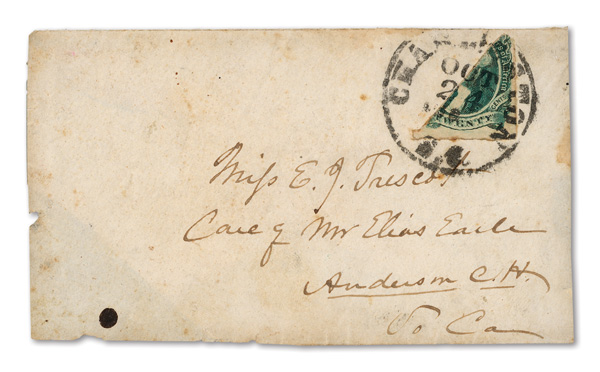 CHARLESTON
OCT
24
TWENTY
Miss E. J. Trescot
Care of Mr Elias Earle
Anderson C.H.
So Ca